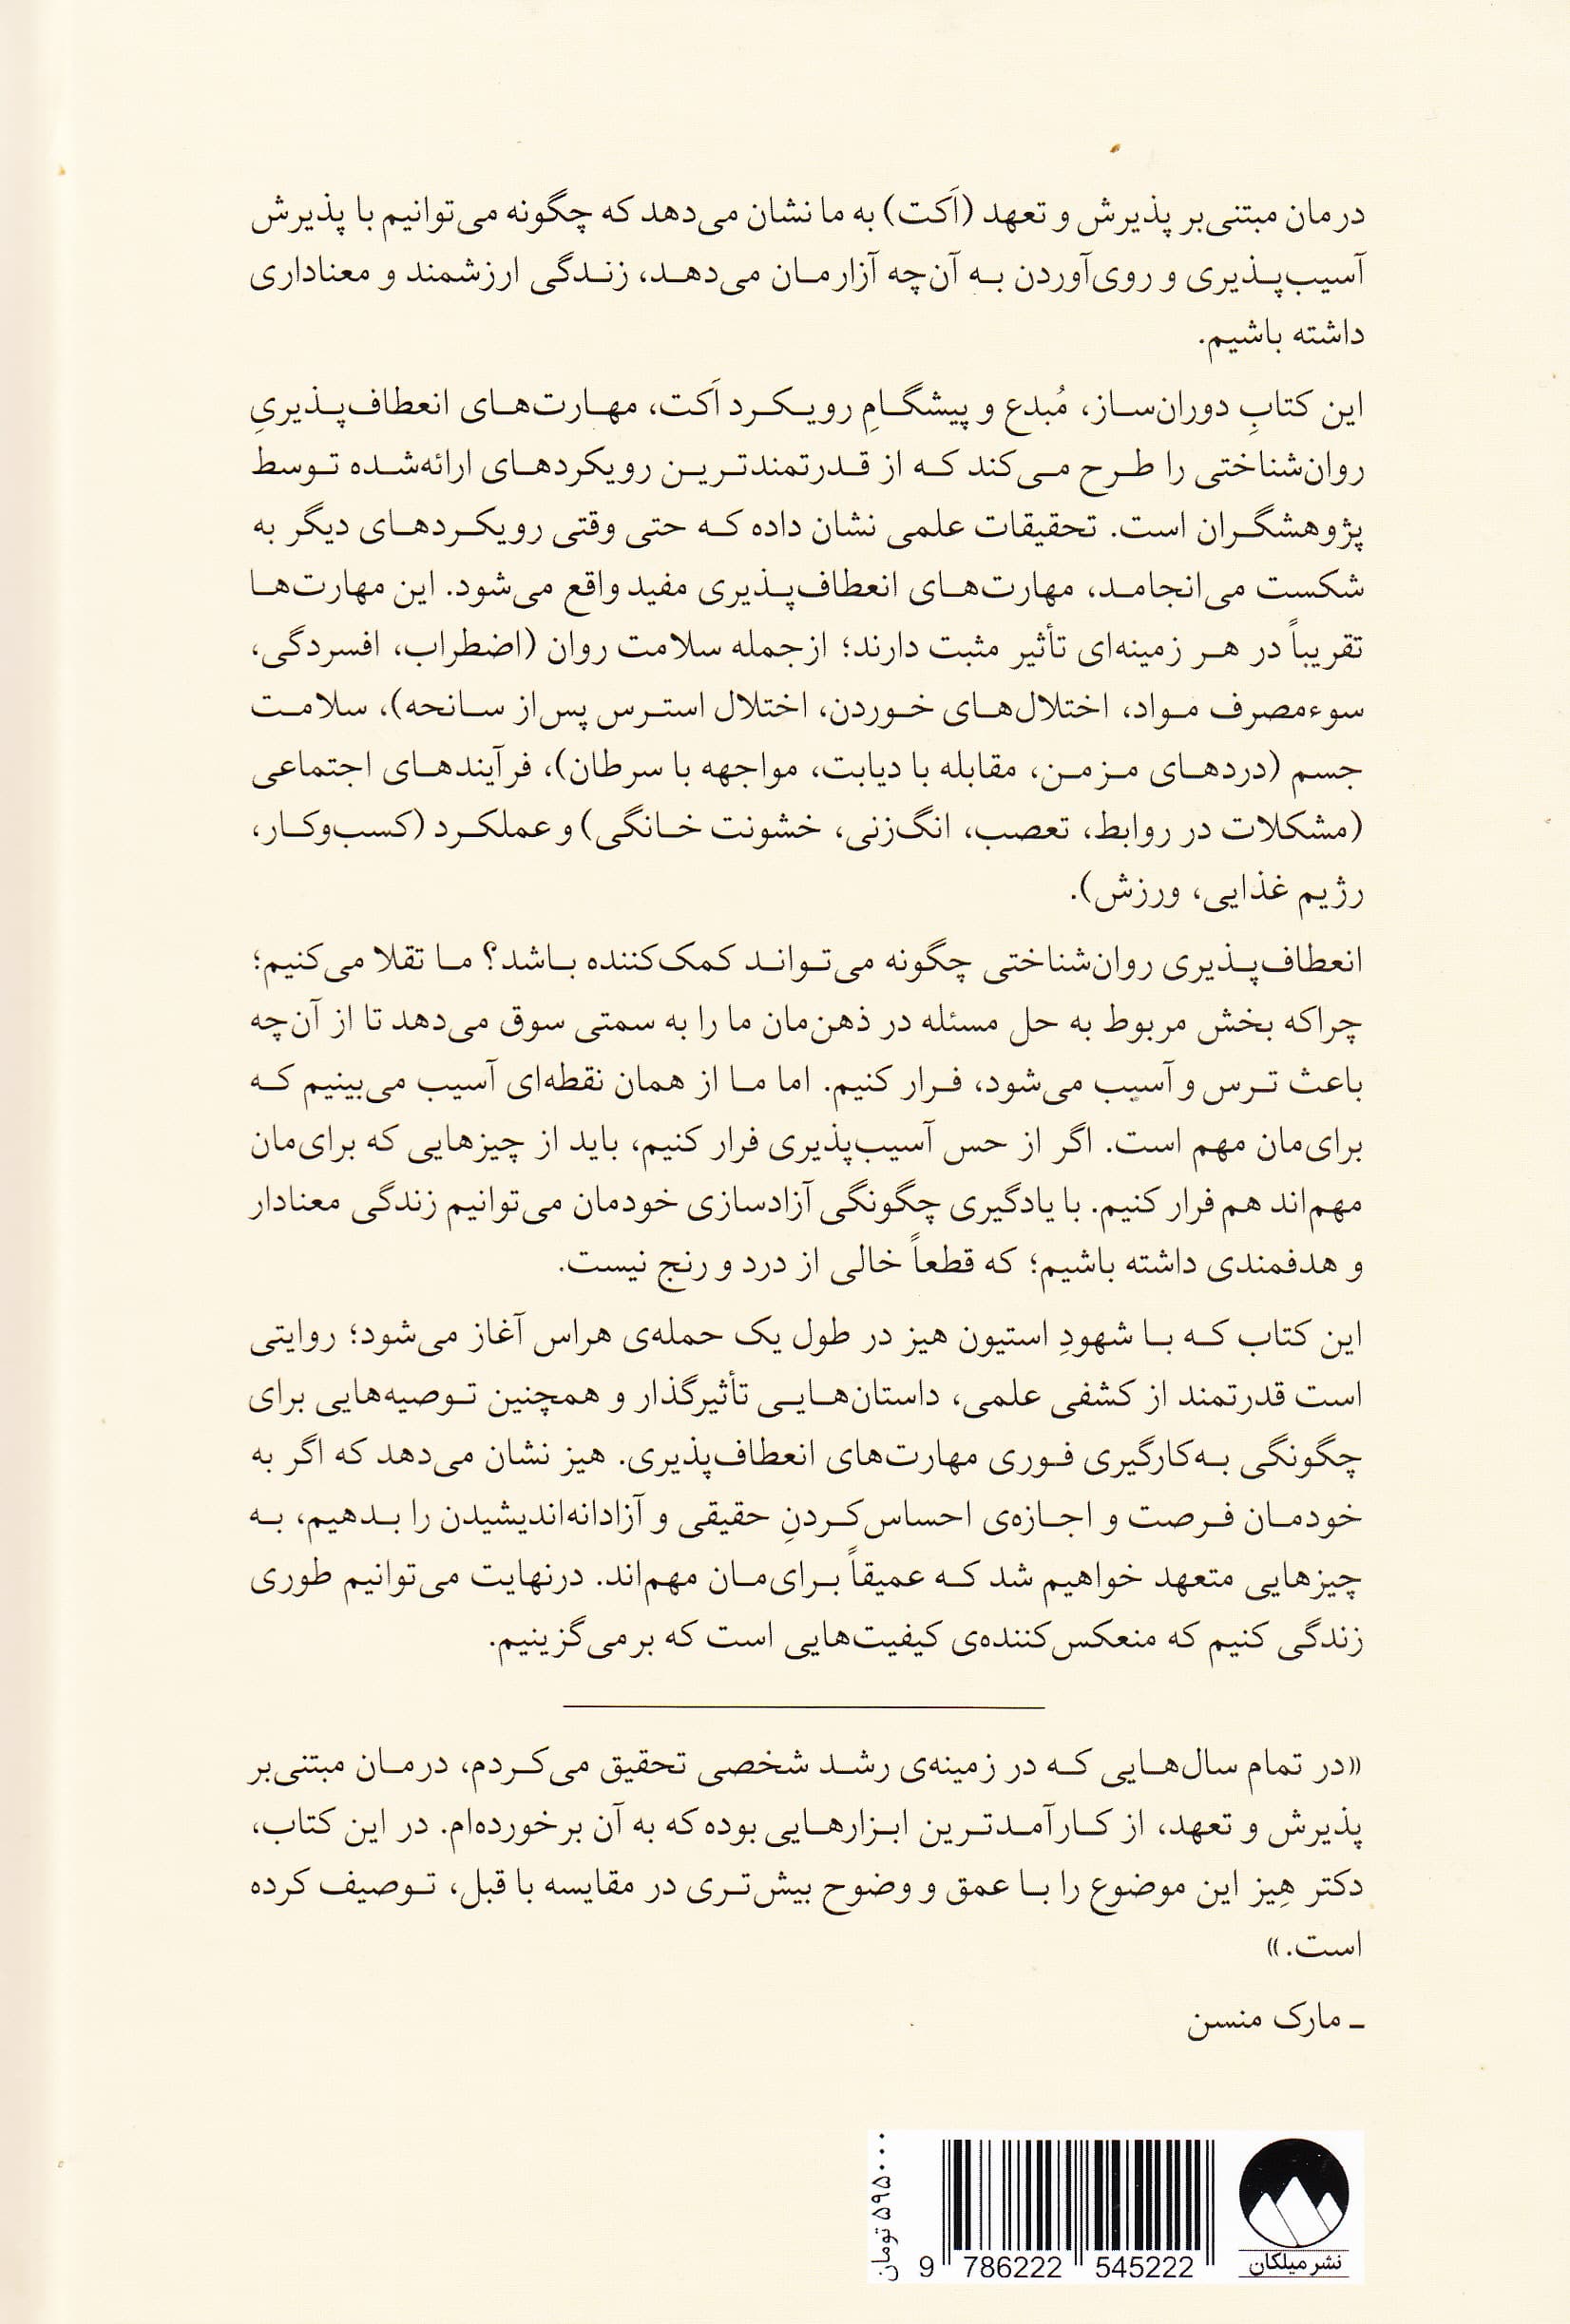 درمان مبتنی‌بر پذیرش و تعهد (اَکت) به ما نشان می‌دهد که چگونه می‌توانیم با پذیرش
آسیب‌پذیری و روی‌آوردن به آن‌چه آزارمان می‌دهد، زندگی ارزشمند و معناداری
داشته باشیم.
این کتابِ دوران‌ساز، مُبدع و پیشگامِ رویکرد اَکت، مهارت‌های انعطاف‌پذیریِ
روان‌شناختی را طرح می‌کند که از قدرتمندترین رویکردهای ارائه‌شده توسط
پژوهشگران است. تحقیقات علمی نشان داده که حتی وقتی رویکردهای دیگر به
شکست می‌انجامد، مهارت‌های انعطاف‌پذیری مفید واقع می‌شود. این مهارت‌ها
تقریباً در هر زمینه‌ای تأثیر مثبت دارند؛ ازجمله سلامت روان (اضطراب، افسردگی،
سوءمصرف مواد، اختلال‌های خوردن، اختلال استرس پس‌از سانحه)، سلامت
جسم (دردهای مزمن، مقابله با دیابت، مواجهه با سرطان)، فرآیندهای اجتماعی
(مشکلات در روابط، تعصب، انگ‌زنی، خشونت خانگی) و عملکرد (کسب‌وکار،
رژیم غذایی، ورزش).
انعطاف‌پذیری روان‌شناختی چگونه می‌تواند کمک‌کننده باشد؟ ما تقلا می‌کنیم؛
چراکه بخش مربوط به حل مسئله در ذهن‌مان ما را به سمتی سوق می‌دهد تا از آن‌چه
باعث ترس و آسیب می‌شود، فرار کنیم. اما ما از همان نقطه‌ای آسیب می‌بینیم که
برای‌مان مهم است. اگر از حس آسیب‌پذیری فرار کنیم، باید از چیزهایی که برای‌مان
مهم‌اند هم فرار کنیم. با یادگیری چگونگی آزادسازی خودمان می‌توانیم زندگی معنادار
و هدفمندی داشته باشیم؛ که قطعاً خالی از درد و رنج نیست.
این کتاب که با شهودِ استیون هیز در طول یک حمله‌ی هراس آغاز می‌شود؛ روایتی
است قدرتمند از کشفی علمی، داستان‌هایی تأثیرگذار و همچنین توصیه‌هایی برای
چگونگی به‌کارگیری فوری مهارت‌های انعطاف‌پذیری. هیز نشان می‌دهد که اگر به
خودمان فرصت و اجازه‌ی احساس‌کردنِ حقیقی و آزادانه‌اندیشیدن را بدهیم، به
چیزهایی متعهد خواهیم شد که عمیقاً برای‌مان مهم‌اند. درنهایت می‌توانیم طوری
زندگی کنیم که منعکس‌کننده‌ی کیفیت‌هایی است که برمی‌گزینیم.
«در تمام سال‌هایی که در زمینه‌ی رشد شخصی تحقیق می‌کردم، درمان مبتنی‌بر
پذیرش و تعهد، از کارآمدترین ابزارهایی بوده که به آن برخورده‌ام. در این کتاب،
دکتر هِیز این موضوع را با عمق و وضوح بیش‌تری در مقایسه با قبل، توصیف کرده
است.»
ـ مارک منسن
نشر میلکان
9 786222 545222
۵۹۵۰۰۰ تومان